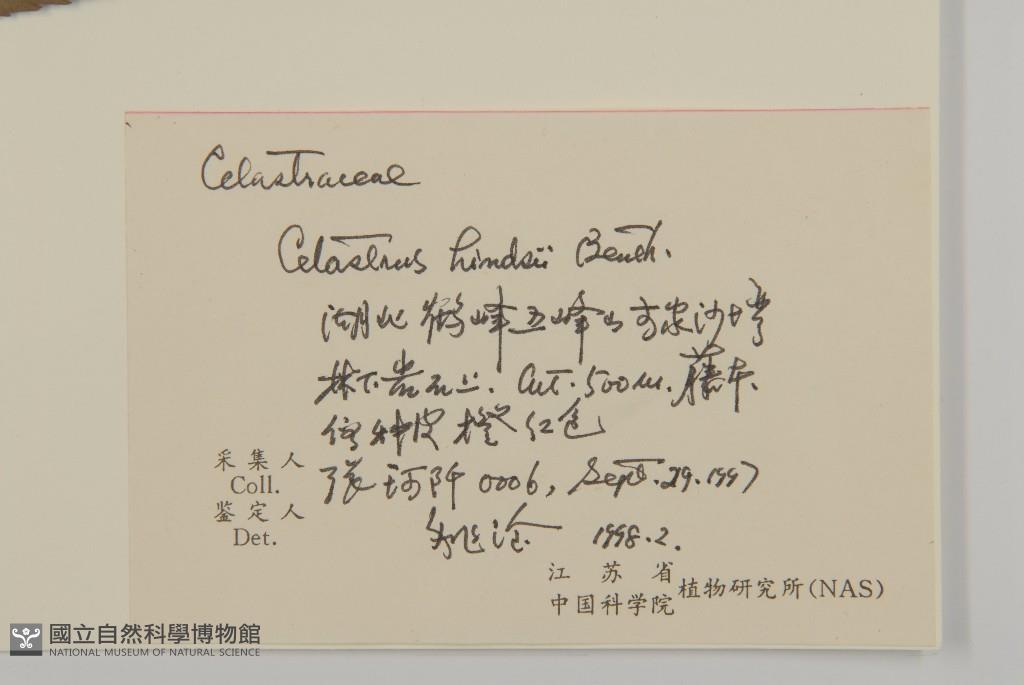 Celastraceae
Celastrus hindsii Benth.
湖北 鹤峰五峰山 沙湾
林下岩石上. Alt. 500 m. 藤本.
假种皮橙红色
采集人
Coll.
張 0006, Sept. 29. 1997
鉴定人
Det.
1998. 2.
江苏省
中国科学院植物研究所(NAS)
國立自然科學博物館
NATIONAL MUSEUM OF NATURAL SCIENCE